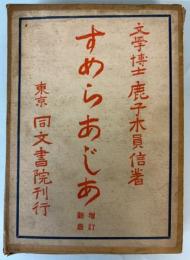 文学博士 鹿子木員信著
すめらあじあ
増訂
新版
東京 同文書院刊行